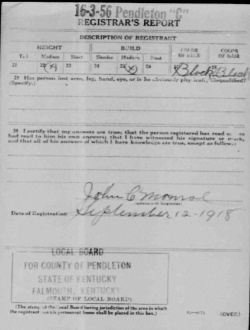 16-3-56 Pendleton "C"
REGISTRAR'S REPORT
DESCRIPTION OF REGISTRANT
HEIGHT BUILD COLOR OF EYES COLOR OF HAIR
Tall Medium Short Slender Medium Stout
21 22 x 23 24 25 x 26 27 Black 28 Black
29 Has person lost arm, leg, hand, eye, or is he obviously physically disqualified?
(Specify.)
30 I certify that my answers are true; that the person registered has read or has
had read to him his own answers; that I have witnessed his signature or mark,
and that all of his answers of which I have knowledge are true, except as follows:
John C Monroe
Date of Registration September 12-1918
LOCAL BOARD
FOR COUNTY OF PENDLETON
STATE OF KENTUCKY
FALMOUTH, KENTUCKY
(STAMP OF LOCAL BOARD)
(The stamp of the Local Board having jurisdiction of the area in which
the registrant has his permanent home shall be placed in this box.)
(OVER)